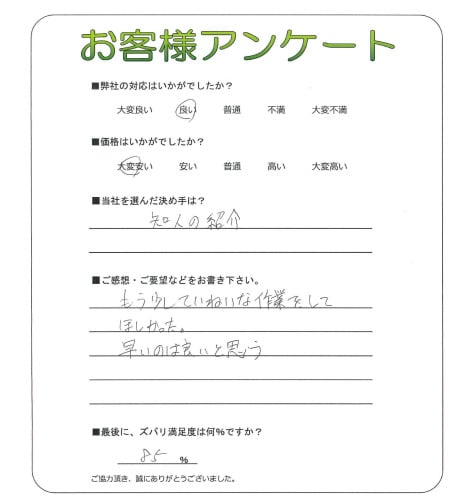 お客様アンケート
■弊社の対応はいかがでしたか？
大変良い 良い 普通 不満 大変不満
■価格はいかがでしたか？
大変安い 安い 普通 高い 大変高い
■当社を選んだ決め手は？
知人の紹介
■ご感想・ご要望などをお書き下さい。
もう少していねいな作業をして
ほしかった。
早いのは良いと思う
■最後に、ズバリ満足度は何%ですか？
85 %
ご協力頂き、誠にありがとうございました。